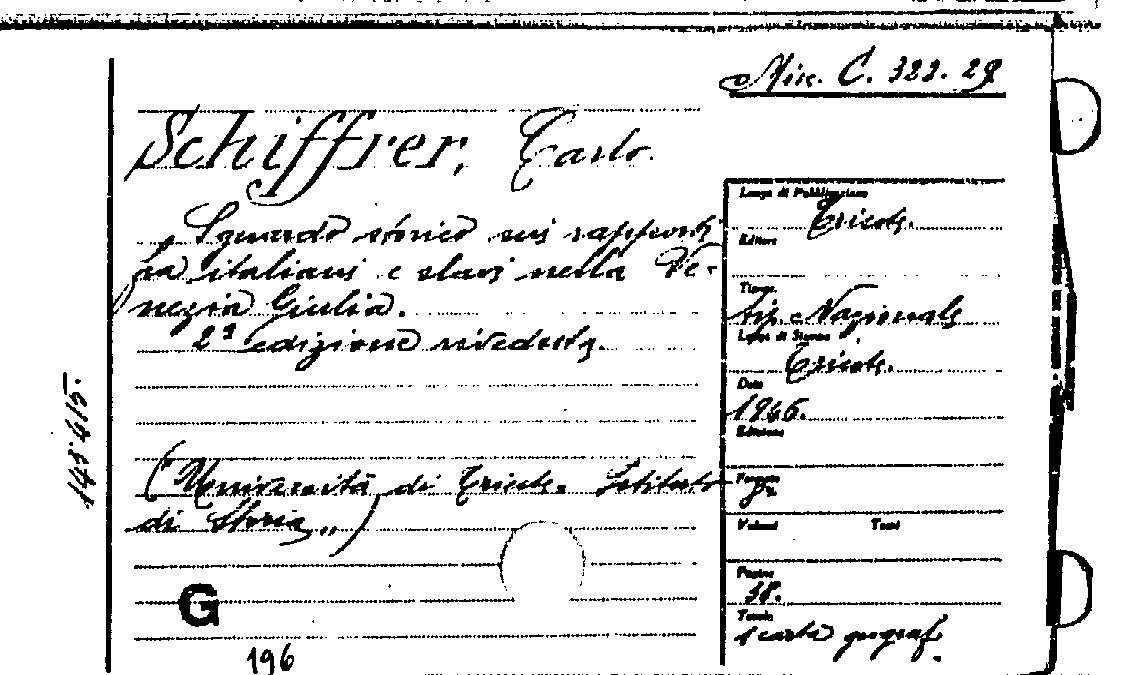 Misc. C. 322. 29
Schiffrer, Carlo.
Sguardo storico sui rapporti
fra italiani e slavi nella Ve-
nezia Giulia.
2ª edizione riveduta.
("Università di Trieste. Istituto
di Storia")
G
196
143415.
Luogo di Pubblicazione
Trieste.
Editore
Tipogr.
Tip. Nazionale
Luogo di Stampa
Trieste.
Data
1946.
Edizione
Formato
8º
Volumi Tomi
Pagine
38.
Tavole
1 carta geograf.